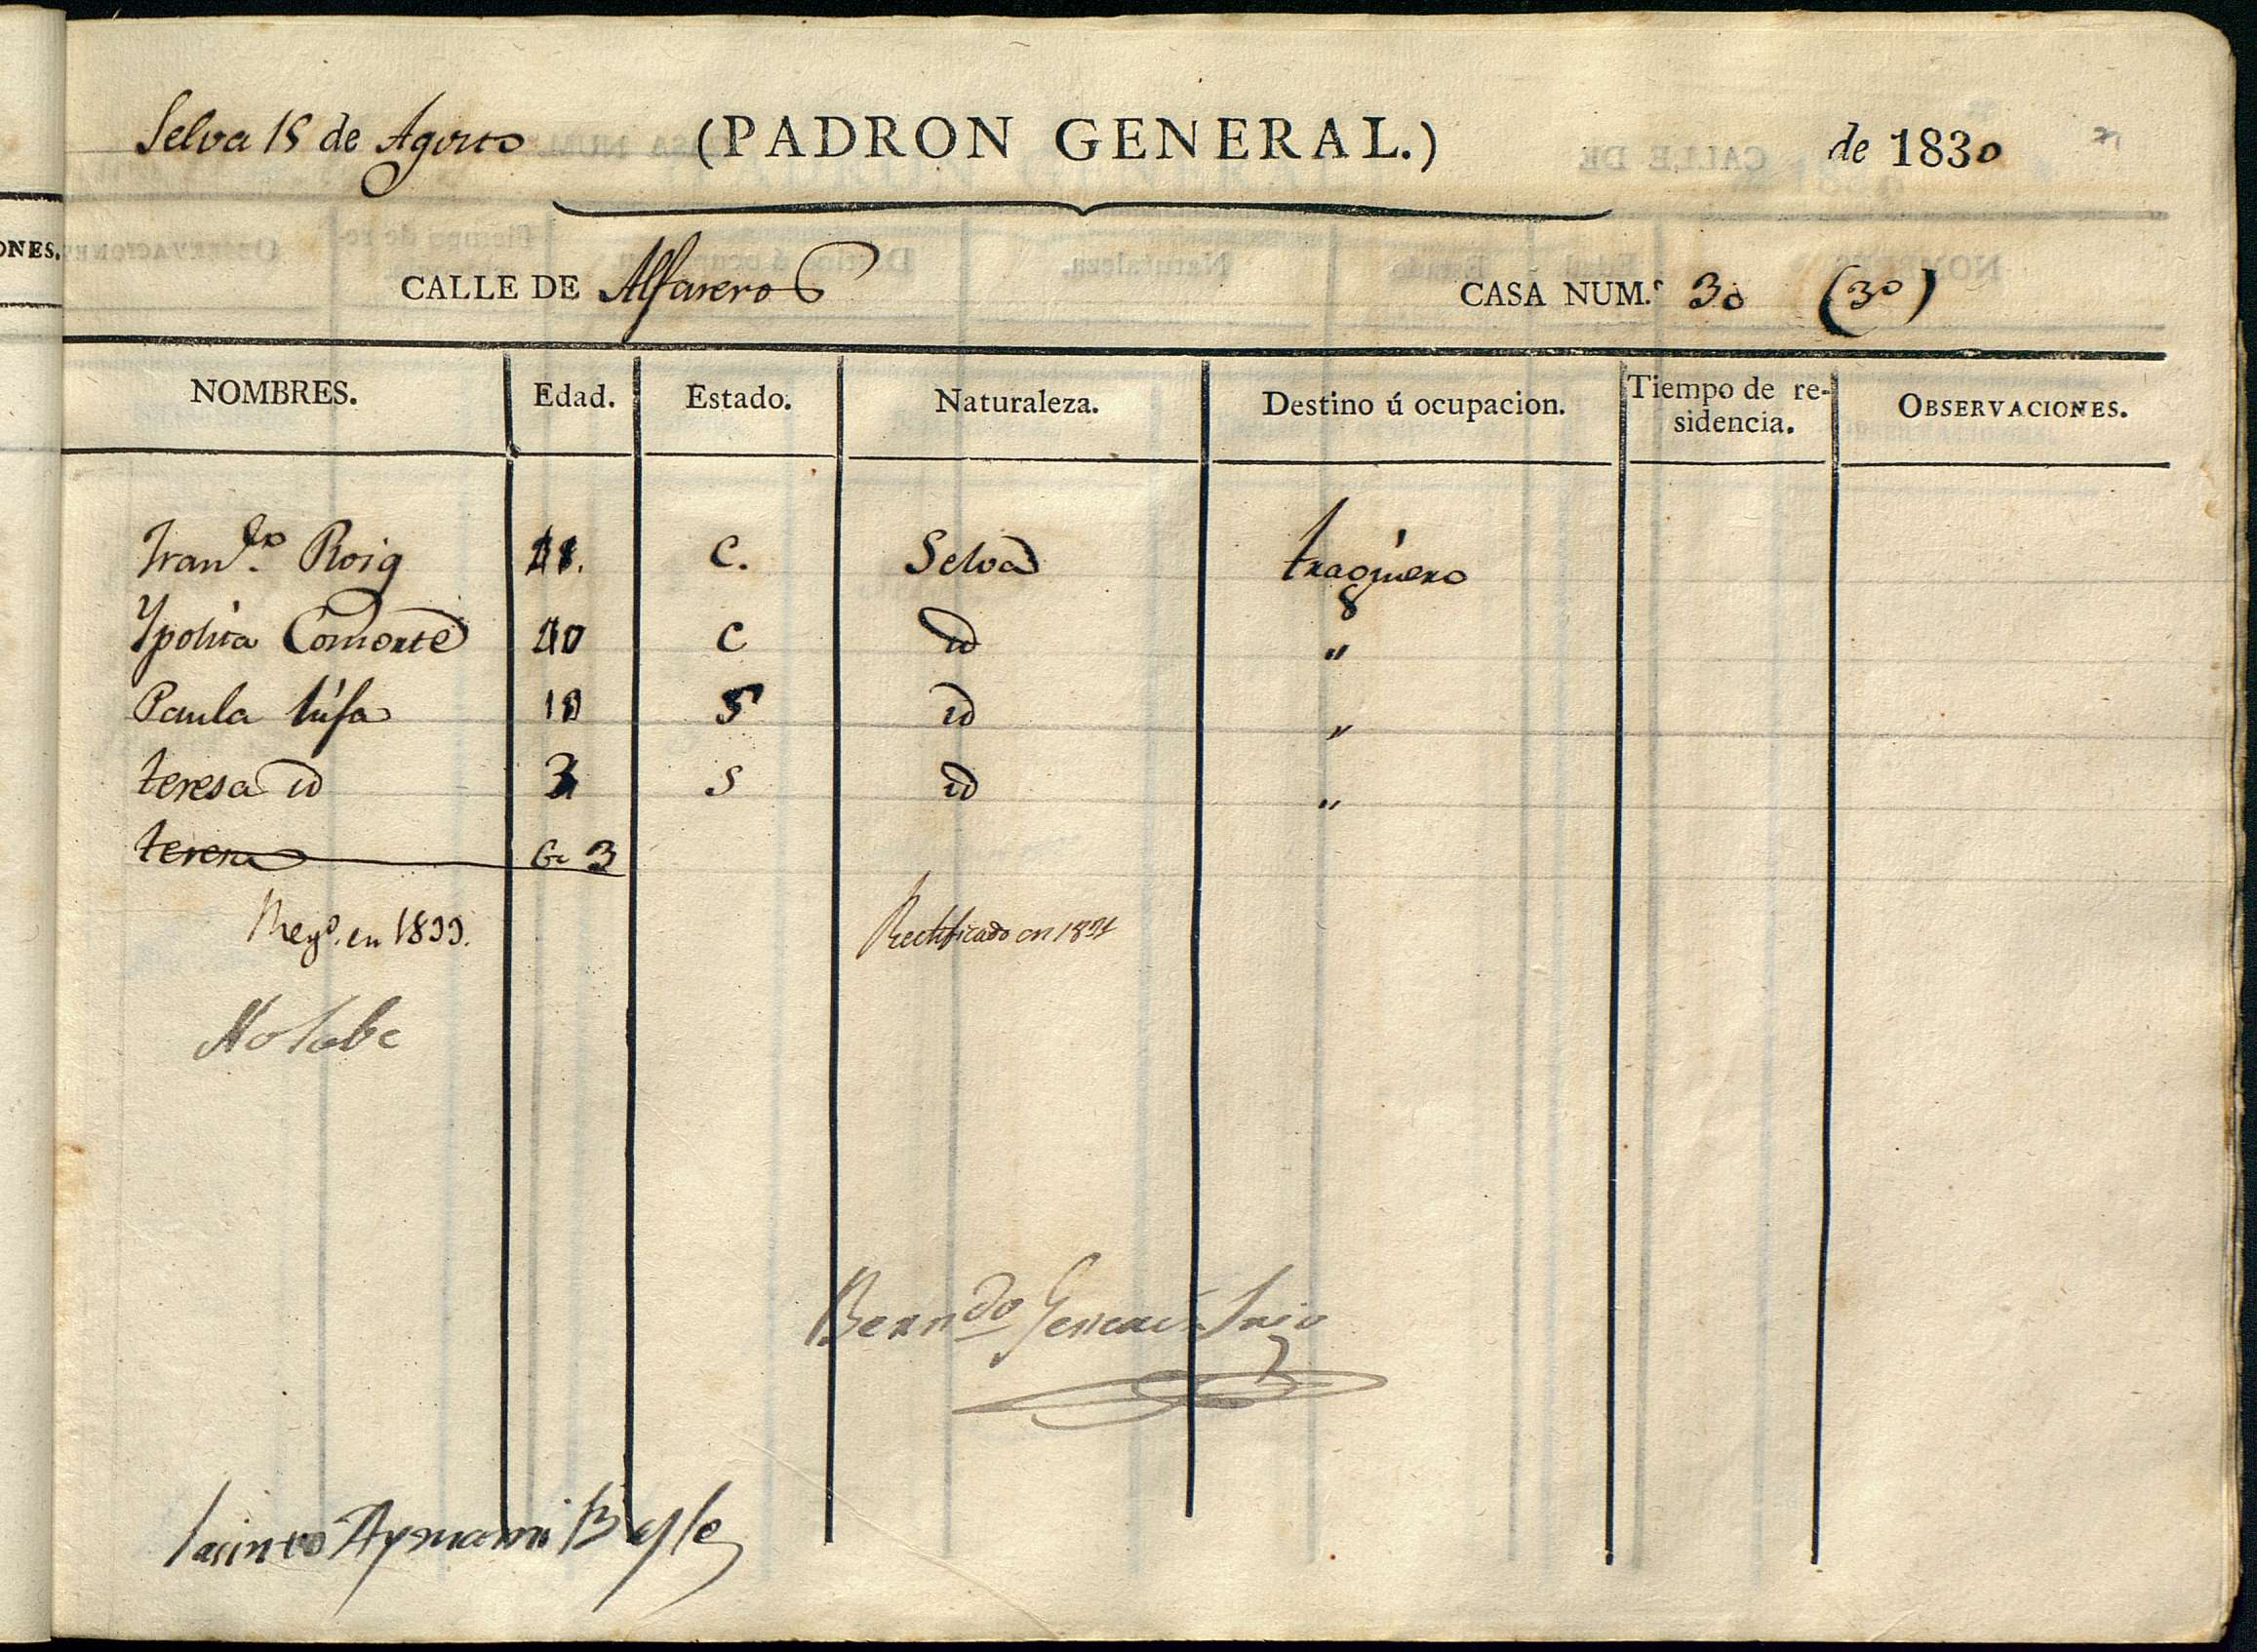 Selva 15 de Agosto (PADRON GENERAL.) de 1830
CALLE DE Alfareros CASA NUM.º 30 (30)
NOMBRES. Edad. Estado. Naturaleza. Destino ú ocupacion. Tiempo de re-
sidencia. OBSERVACIONES.
Fran.co Roig C. Selva traginero
Ypolita C id "
Paula hija S id "
teresa id 3 S id "
teresa 3
en 1833. Rectificado en 1831
Notabe
Bern.do
Jacinto Aymami Bayle